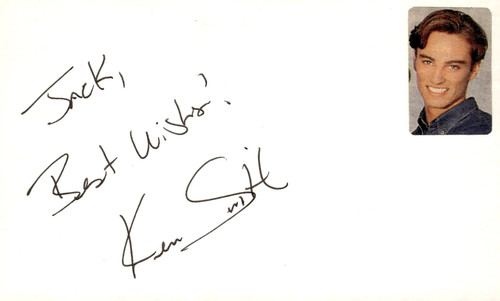 Jack,
Best Wishes!
Smith